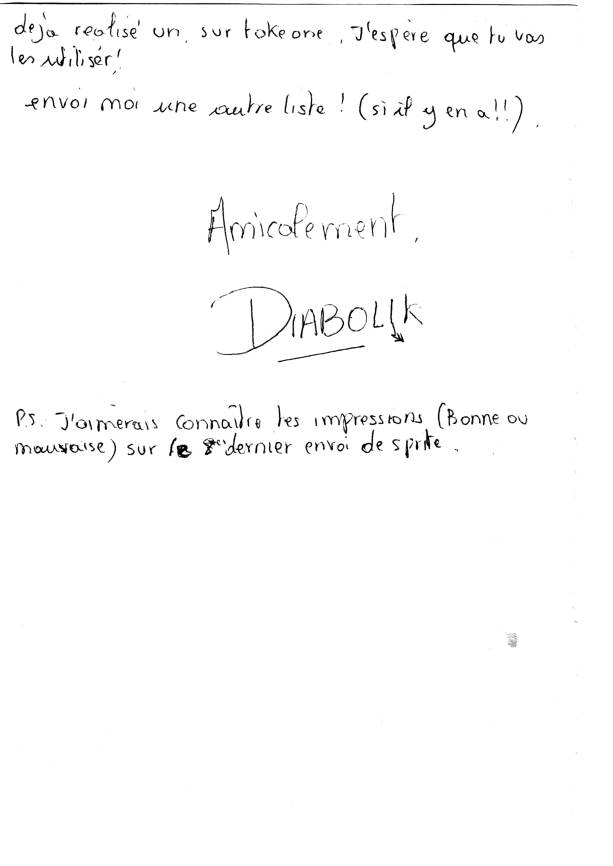 deja realisé un, sur takeone, J'espère que tu vas
les utilisér!
envoi moi une autre liste! (si il y en a!!).
Amicalement,
DIABOLIK
P.S. J'aimerais connaître tes impressions (Bonne ou
mauvaise) sur le dernier envoi de sprite.